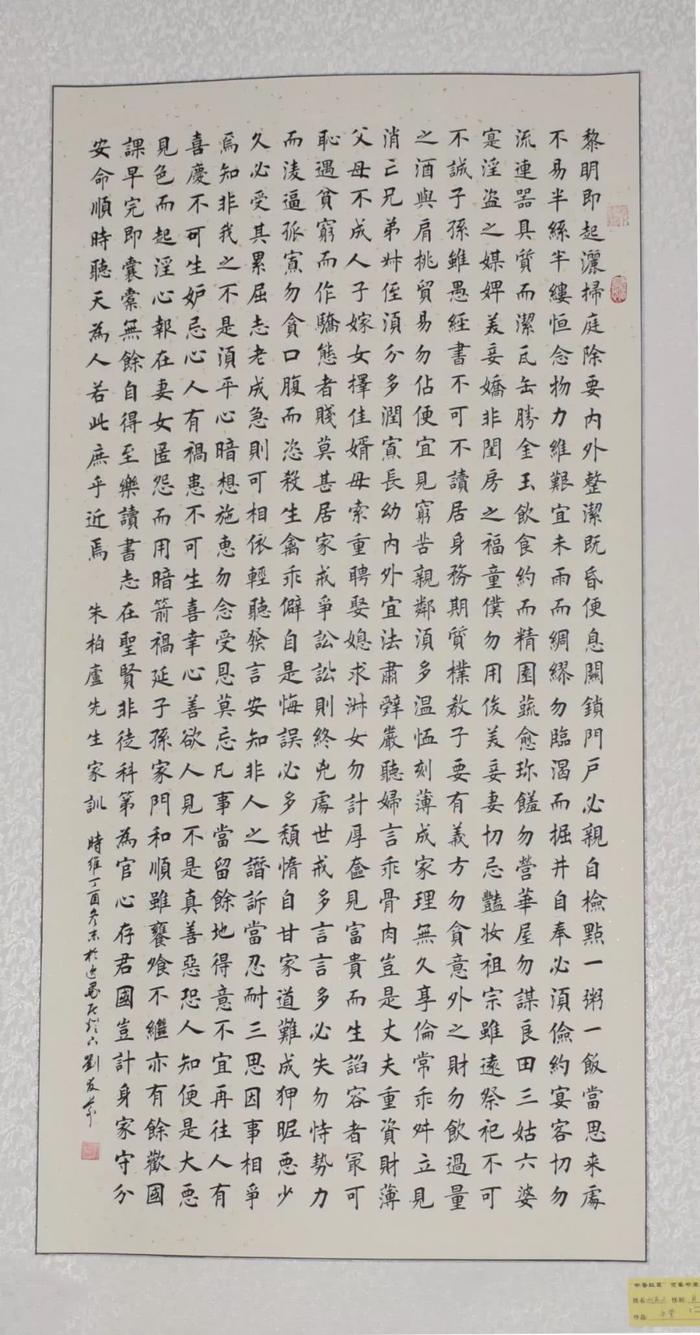 黎明即起灑掃庭除要內外整潔既昏便息關鎖門戶必親自檢點一粥一飯當思来處
不易半絲半縷恒念物力維艱宜未雨而綢繆勿臨渴而掘井自奉必須儉約宴客切勿
流連器具質而潔瓦缶勝金玉飲食約而精園蔬愈珍饈勿營華屋勿謀良田三姑六婆
寔淫盜之媒婢美妾嬌非閨房之福童僕勿用俊美妾妻切忌豔妝祖宗雖遠祭祀不可
不誠子孫雖愚經書不可不讀居身務期質樸教子要有義方勿貪意外之財勿飲過量
之酒與肩挑貿易勿佔便宜見窮苦親鄰須多溫恤刻薄成家理無久享倫常乖舛立見
消亡兄弟姊侄須分多潤寡長幼內外宜法肅辭嚴聽婦言乖骨肉豈是丈夫重資財薄
父母不成人子嫁女擇佳婿毋索重聘娶媳求淑女勿計厚奩見富貴而生諂容者冣可
恥遇貧窮而作驕態者賤莫甚居家戒爭訟訟則終凶處世戒多言言多必失勿恃勢力
而淩逼孤寡勿貪口腹而恣殺生禽乖僻自是悔誤必多頹惰自甘家道難成狎昵惡少
久必受其累屈志老成急則可相依輕聽發言安知非人之譖訴當忍耐三思因事相爭
焉知非我之不是須平心暗想施惠勿念受恩莫忘凡事當留餘地得意不宜再往人有
喜慶不可生妒忌心人有禍患不可生喜幸心善欲人見不是真善惡恐人知便是大惡
見色而起淫心報在妻女匿怨而用暗箭禍延子孫家門和順雖饔飧不繼亦有餘歡國
課早完即囊橐無餘自得至樂讀書志在聖賢非徒科第為官心存君國豈計身家守分
安命順時聽天為人若此庶乎近焉 朱柏廬先生家訓 時維丁酉冬末於 劉友